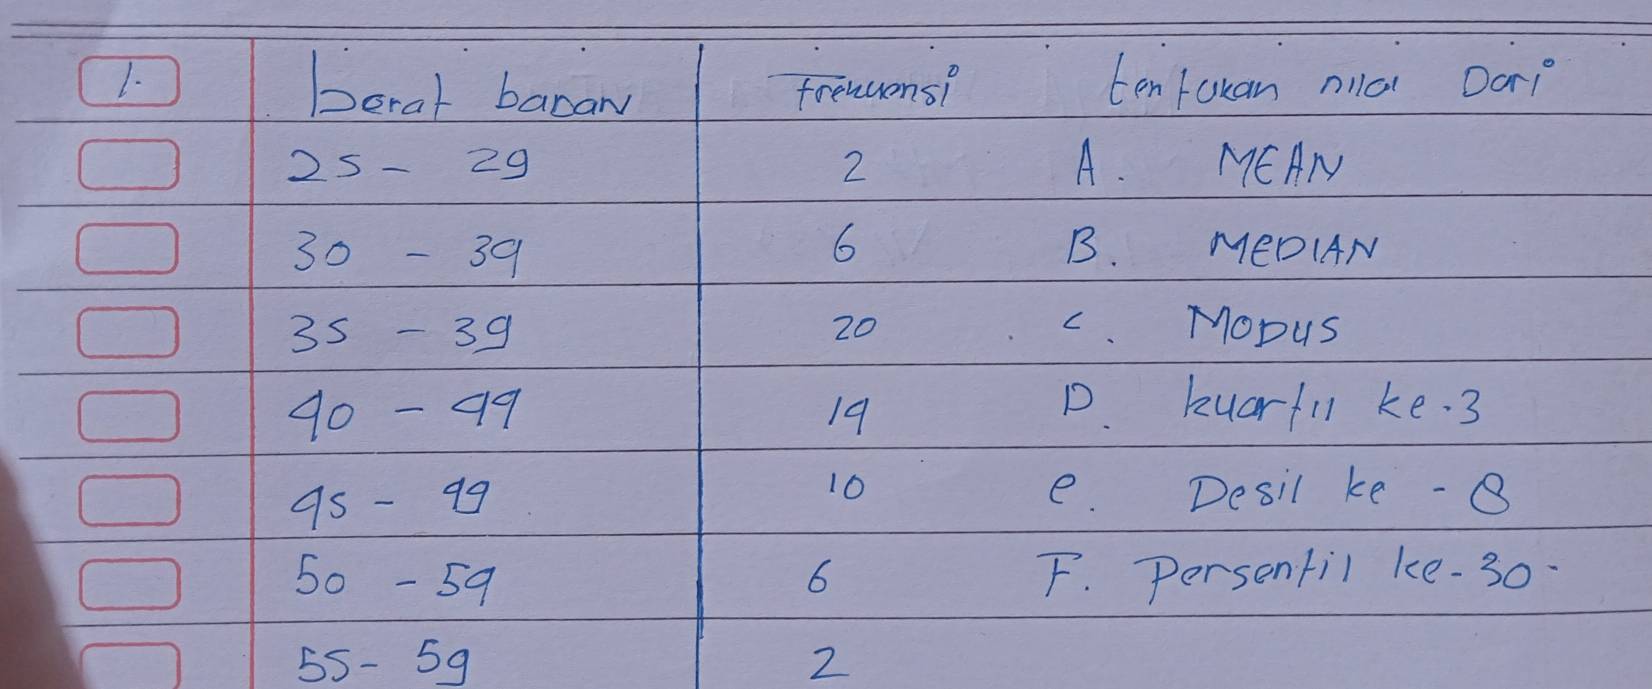 1. berat badan Frekuensi tentukan nilai Dari
25 - 29 2 A. MEAN
30 - 34 6 B. MEDIAN
35 - 39 20 C. MODUS
40 - 44 14 D. kuartil ke-3
45 - 49 10 e. Desil ke - 8
50 - 54 6 F. Persentil ke-30.
55 - 59 2